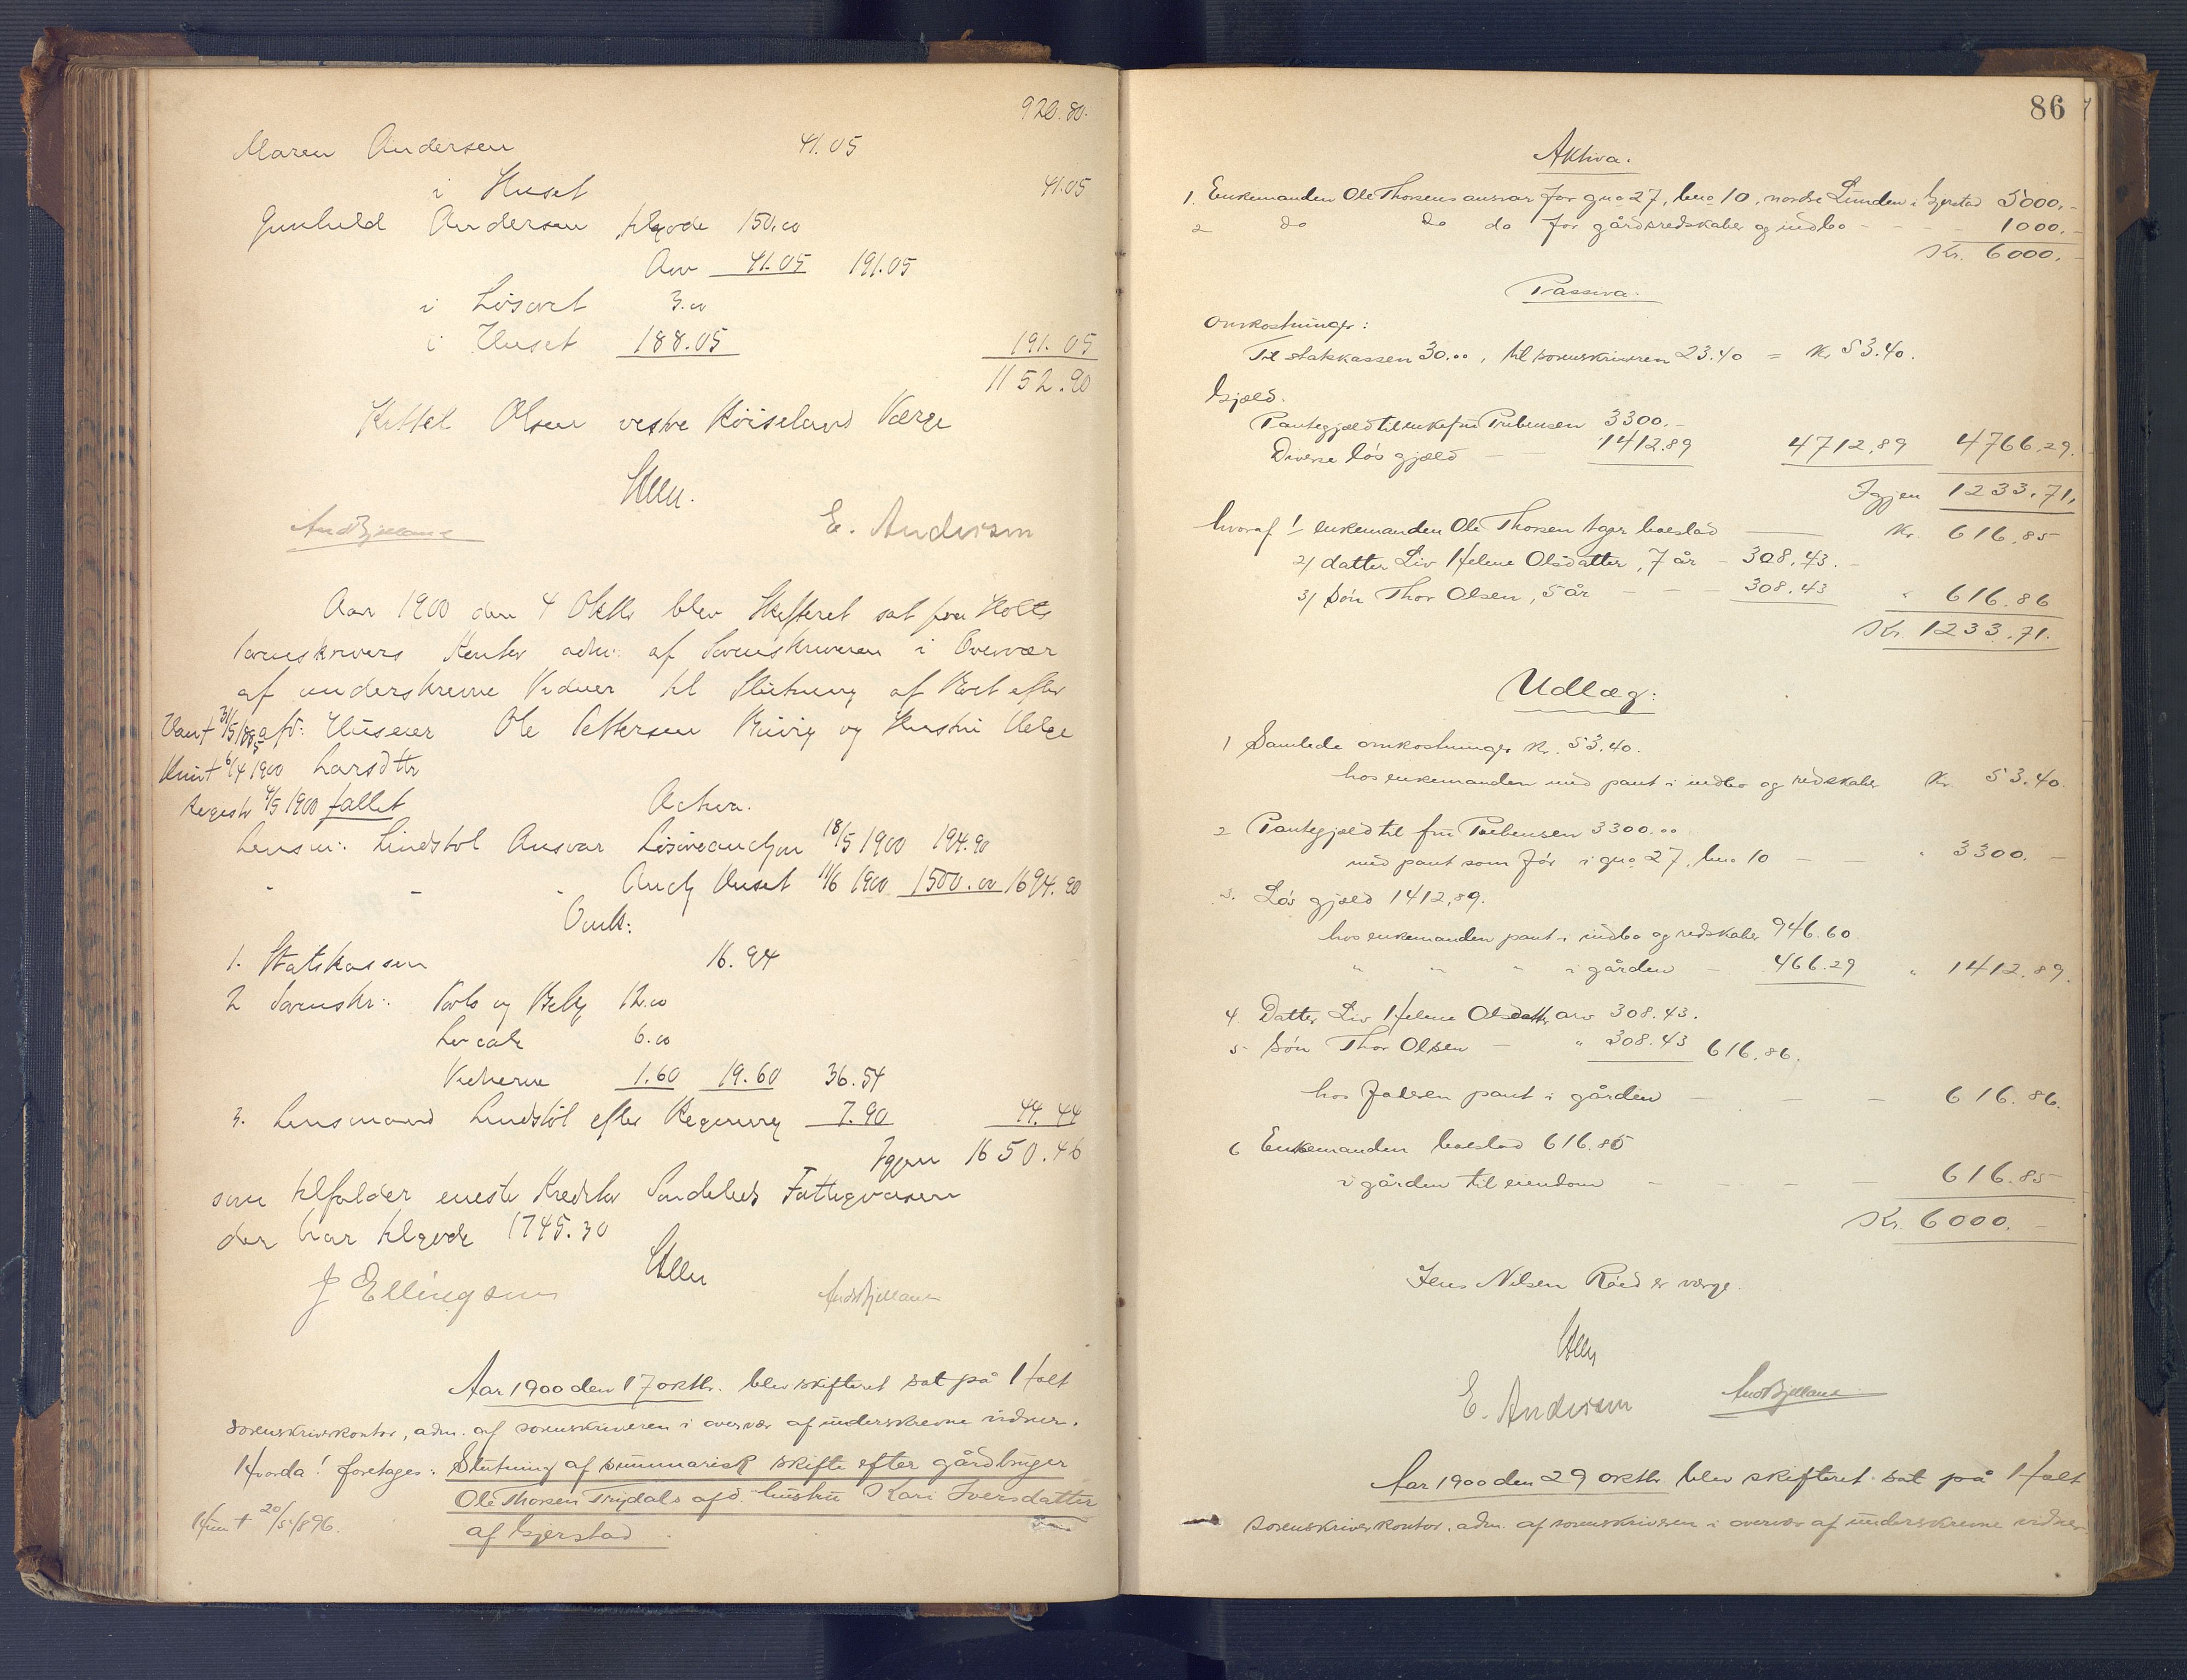 920.80.
Maren Andersen 41.05
i Huset 41.05
Gunhild Andersen tilgode 150.00
Arv 41.05 191.05
i Løsøret 3.00
i Huset 188.05 191.05
1152.90
Kittel Olsen vestre Røiseland Værge
E. Andersen
Aar 1900 den 4 Oktbr blev Skifteret sat paa Holts
Sorenskrivers Kontor adm: af Sorenskriveren i Overvær
af underskrevne Vidner til Slutning af Boet efter
afd: Huseier Ole Pettersen og Hustru Helge
6/4 1900 Larsdtr
4/5 1900 fallit Activa.
Lensm: Lindstøl Ansvar Løsøreauction 18/5 1900 194.90
" " " Auct Huset 11/6 1900 1500.00 1694.90
Omk:
1. Statskassen 16.94
2 Sorenskr: Prots og Bek 12.00
Locale 6.00
Vidnerne 1.60 19.60 36.54
3. Lensmand Lindstøl efter Regning 7.90 44.44
Igjen 1650.46
som tilfalder eneste Kreditor Søndeleds Fattigvæsen
der har tilgode 1745.30
J Ellingsen
Aar 1900 den 17 oktbr. blev skifteret sat på Holt
sorenskriverkontor, adm. af sorenskriveren i overvær af underskrevne vidner.
Hvorda! foretages: Slutning af summarisk skifte efter gårdbruger
Ole Thorsen afd. hustru Kari Iversdatter
Hun † 20/5 1896.
af Gjerstad
86
Aktiva.
1. Enkemanden Ole Thorsens ansvar for gno 27, bno 10, nordre Lunden i Gjerstad 5000.-
2 do do do for gårdsredskaber og indbo - - - 1000.-
Kr. 6000.-
Passiva:
Omkostninger:
Til statskassen 30.00, til sorenskriveren 23.40 = Kr 53.40.
Gjæld.
Pantegjæld til enkefru Prebensen 3300.-
Diverse løs gjæld - - 1412.89 4712,89 4766,29.
Igjen 1233,71,
hvoraf 1/ enkemanden Ole Thorsen tager boeslod Kr. 616,85
2/ datter Liv Helene Olsdatter, 7 år - 308,43.-
3/ Søn Thor Olsen, 5 år - - - 308.43 " 616.86
Kr. 1233.71.
Udlæg:
1 Samlede omkostninger Kr. 53.40.
hos enkemanden med pant i indbo og redskaber Kr. 53.40.
2 Pantegjæld til fru Prebensen 3300.00
med pant som før i gno 27, bno 10 - - " 3300.-
3. Løs gjæld 1412,89.
hos enkemanden pant i indbo og redskaber 946.60
" " " i gården - 466.29 " 1412.89.
4. Datter Liv Helene Olsdatter arv 308.43.
5 Søn Thor Olsen - " 308.43 616.86.
hos faderen pant i gården - - - 616.86.
6 Enkemanden boeslod 616.85
i gården til eiendom - - - - 616.85
Kr. 6000.-
Jens Nilsen Røed er værge.
E. Andersen
Aar 1900 den 29 oktbr blev skifteret sat på Holt
sorenskriverkontor, adm. af sorenskriveren i overvær af underskrevne vidner